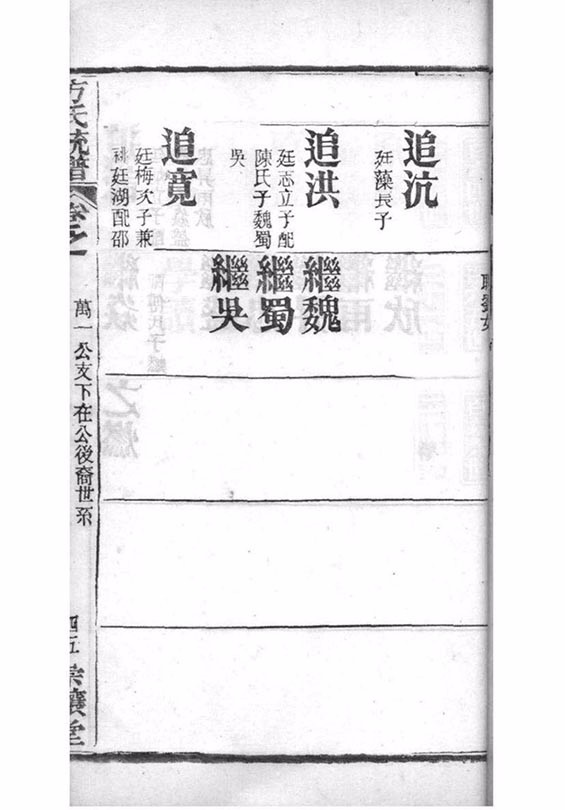 追沆
廷藻長子
追洪
廷志立子配
陳氏子魏蜀
吳
繼魏
繼蜀
繼吳
追寬
廷梅次子兼
祧廷湖配邵
方氏統譜
卷之一
萬一公支下在公後裔世系
四五